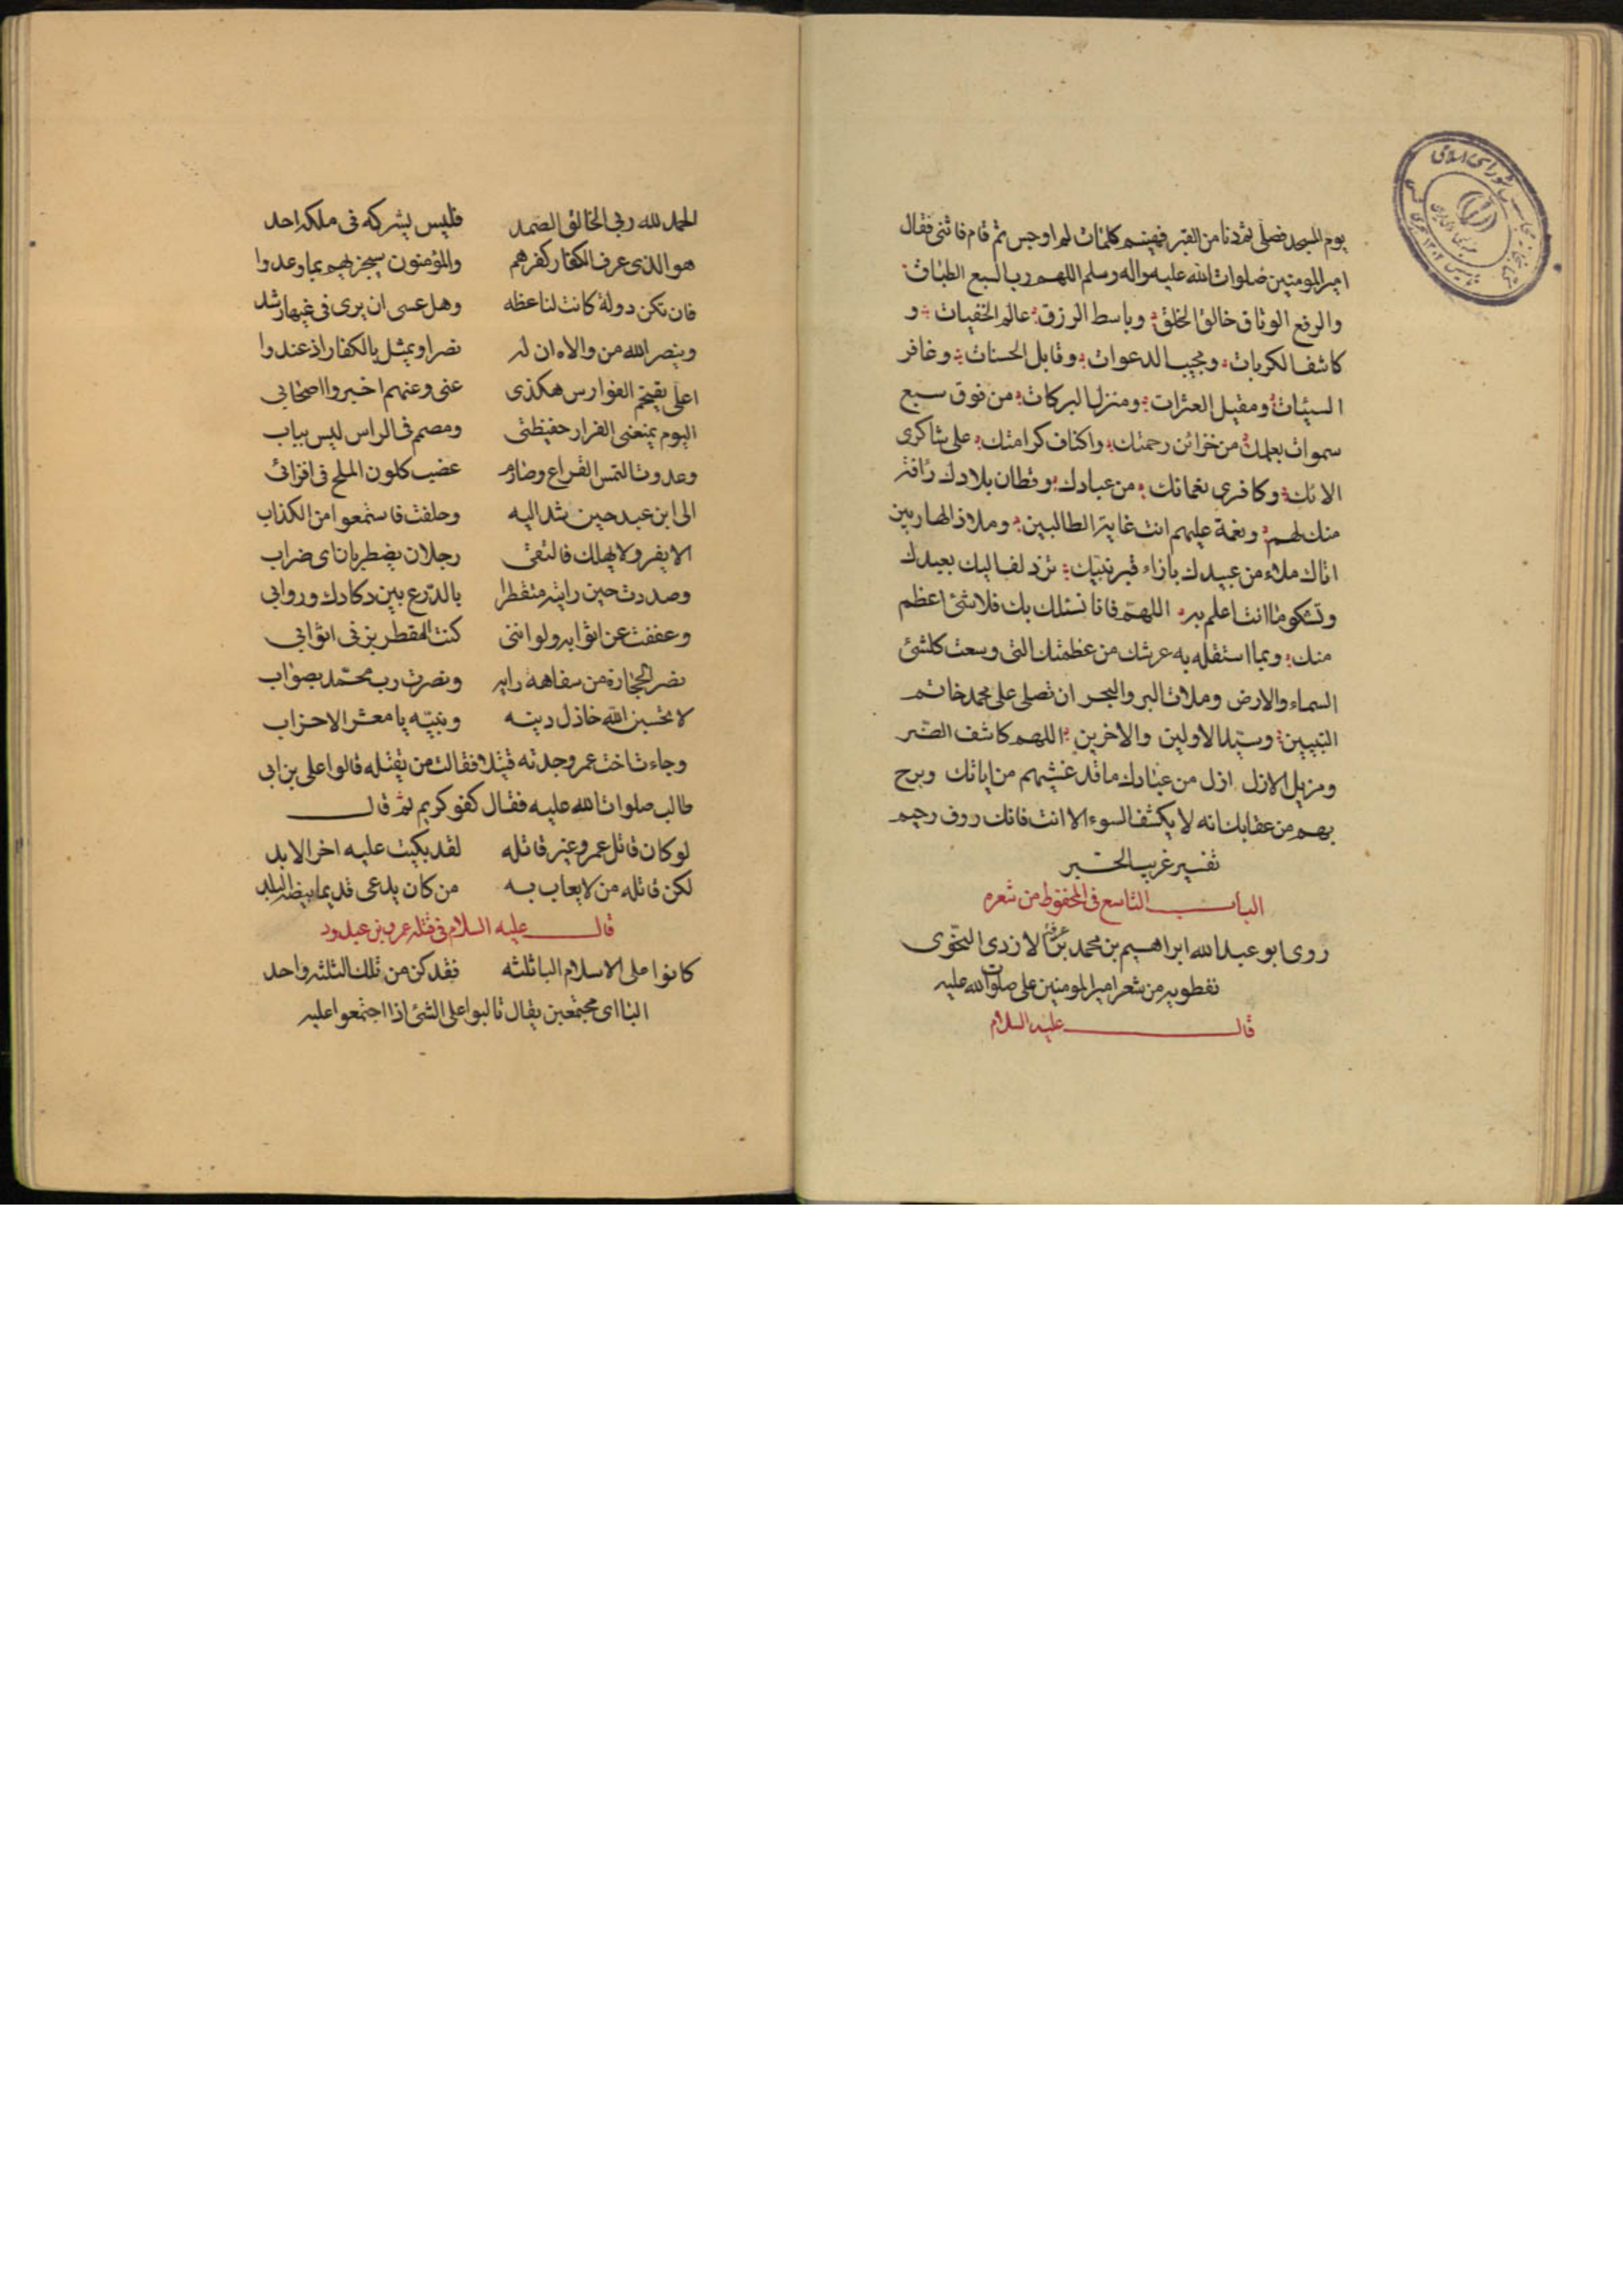 يوم المسجد فصلى ثم دنا من القبر فهينم كلمات لم اوجس ثم قام فاثنى فقال
امير المومنين صلوات الله عليه واله وسلم اللهم رب السبع الطباق
والرفع الوثاق خالق الخلق وباسط الرزق عالم الخفيات و
كاشف الكربات ومجيب الدعوات وقابل الحسنات وغافر
السيئات ومقيل العثرات ومنزل البركات من فوق سبع
سموات بعلمك من خزائن رحمتك واكناف كرامتك على شاكرى
الائك وكافرى نعمائك من عبادك وقطان بلادك رافة
منك لهم ونعمة عليهم انت غاية الطالبين وملاذ الهاربين
اتاك ملاء من عبيدك بازاء قبر نبيك تزدلف اليك بعبدك
وتشكو ما انت اعلم به اللهم فانا نسئلك بك فلا شئ اعظم
منك وبما استقل به عرشك من عظمتك التى وسعت كلشئ
السماء والارض وملات البر والبحر ان تصلى على محمد خاتم
النبيين وسيد الاولين والاخرين اللهم كاشف الضر
ومزيل الازل ازل من عبادك ما قد غشيهم من اياتك وبرح
بهم من عقابك انه لا يكشف السوء الا انت فانك روف رحيم
تفسير غريب الخبر
الباب التاسع فى المحفوظ من شعره
روى ابو عبد الله ابراهيم بن محمد بن عرفة الازدى النحوى
نفطويه من شعر امير المومنين على صلوات الله عليه
قال عليه السلام
الحمد لله ربى الخالق الصمد فليس يشركه فى ملكه احد
هو الذى عرف الكفار كفرهم والمؤمنون سيجزيهم بما وعدوا
فان تكن دولة كانت لنا عظه وهل عسى ان يرى فى غيها رشد
وينصر الله من والاه ان له نصرا ويمثل بالكفار اذ عندوا
اعلى يقتحم الفوارس هكذى عنى وعنهم اخبروا اصحابى
اليوم يمنعنى الفرار حفيظتى ومصمم فى الراس ليس بناب
وعدوت التمس القراع وصارم عضب كلون الملح فى اقرائى
الى ابن عبد حين شد اليه وحلفت فاستمعوا من الكذاب
الا يفر ولا يهلك فالتقى رجلان يضطربان اى ضراب
وصددت حين رايته متقطرا بالدرع بين دكادك وروابى
وعففت عن اثوابه ولو اننى كنت المقطر بزنى اثوابى
نصر الحجارة من سفاهه رايه ونصرت رب محمد بصواب
لا تحسبن الله خاذل دينه ونبيه يا معشر الاحزاب
وجاءت اخت عمر وجدته قتيلا فقالت من يقتله قالوا على بن ابى
طالب صلوات الله عليه فقال كفو كريم ثم قال
لو كان قاتل عمرو غير قاتله لقد بكيت عليه اخر الابد
لكن قاتله من لا يعاب به من كان يدعى قديما بيضة البلد
قال عليه السلام فى قتله عمرو بن عبدود
كانوا على الاسلام البا ثلثه فقد كن من تلك الثلثه واحد
البا اى مجتمعين يقال تالبوا على الشئ اذا اجتمعوا عليه